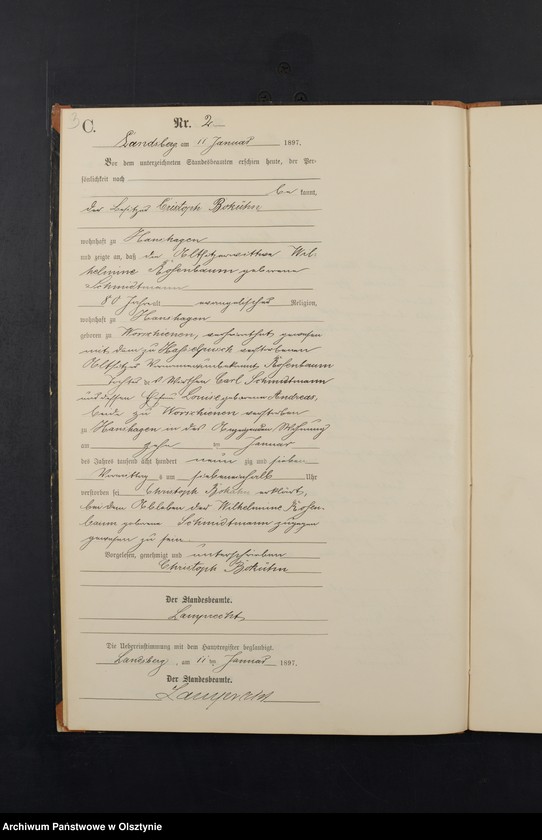 3
C.
Nr. 2
Landsberg am 11 Januar 1897.
Vor dem unterzeichneten Standesbeamten erschien heute, der Per-
sönlichkeit nach
be kannt,
der Besitzer Christoph
wohnhaft zu Hanshagen
und zeigte an, daß die Altsitzerwittwe Wil-
helmine Rosenbaum geborene
Schmidtmann
80 Jahre alt evangelischer Religion,
wohnhaft zu Hanshagen
geboren zu Worschienen, verheirathet gewesen
mit dem zu verstorbenen
Altsitzer Vorname unbekannt Rosenbaum
Tochter des Carl Schmidtmann
und dessen Ehefrau Louise geborene Andreas,
beide zu Worschienen verstorben
zu Hanshagen in der Wohnung
am zehn ten Januar
des Jahres tausend acht hundert neun zig und sieben
Vormittag s um siebeneinhalb Uhr
verstorben sei Christoph erklärt,
bei dem Ableben der Wilhelmine Rosen-
baum geborene Schmidtmann zugegen
gewesen zu sein
Vorgelesen, genehmigt und unterschrieben
Christoph
Der Standesbeamte.
Lamprecht
Die Uebereinstimmung mit dem Hauptregister beglaubigt.
Landsberg, am 11 ten Januar 1897.
Der Standesbeamte.
Lamprecht
Archiwum Państwowe w Olsztynie